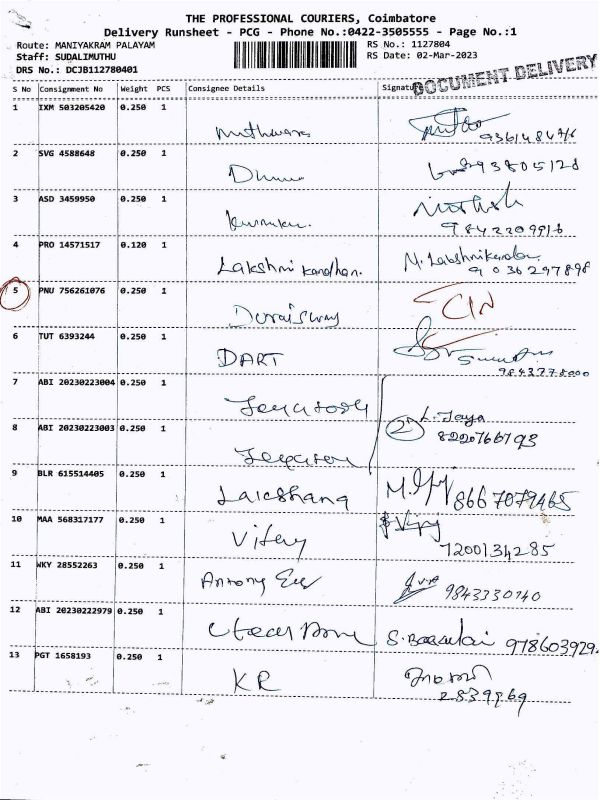 THE PROFESSIONAL COURIERS, Coimbatore
Delivery Runsheet - PCG - Phone No.:0422-3505555 - Page No.:1
Route: MANIYAKRAM PALAYAM
RS No.: 1127804
Staff: SUDALIMUTHU
RS Date: 02-Mar-2023
DRS No.: DCJB112780401
DOCUMENT DELIVERY
S No Consignment No Weight PCS Consignee Details
1 IXM 503205420 0.250 1
2 SVG 4588648 0.250 1
3 ASD 3459950 0.250 1
9842209916
4 PRO 14571517 0.120 1 Lakshmi Kandhan. M. Lakshmikandan
9036297898
5 PNU 756261076 0.250 1 Duraiswamy
6 TUT 6393244 0.250 1 DART
7 ABI 20230223004 0.250 1
2 L. Jaya
8 ABI 20230223003 0.250 1 8220766793
9 BLR 615514405 0.250 1 Lakshana 8667079465
10 MAA 568317177 0.250 1 Vijay
7200134285
11 WKY 28552263 0.250 1 Antony
9843330740
12 ABI 20230222979 0.250 1 978603929
13 PGT 1658193 0.250 1 KR
2539969